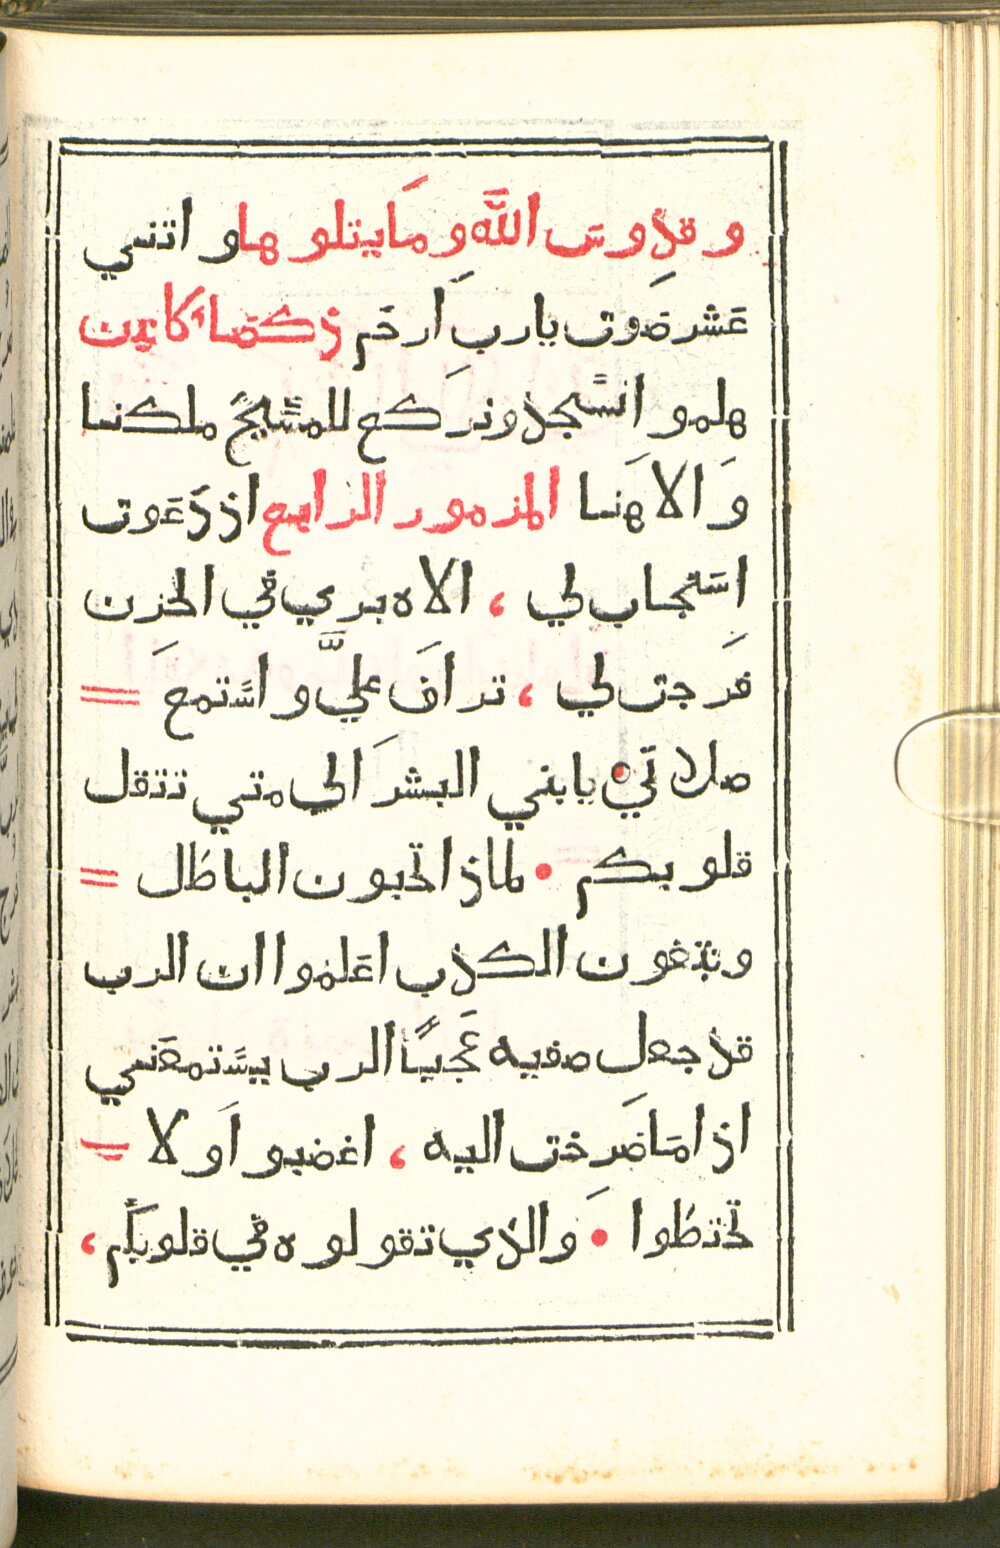 و قدوس الله وما يتلوها واتني
عشر صوت يارب ارحم ذكصاءكاءين
هلموا نسجد ونركع للمسيح ملكنا
والاهنا المزمور الرابع اذ دعوت
استجاب لي ، الاه بري في الحزن
فرجت لي ، تراف علي واستمع =
صلاتي يا بني البشر الى متي تتقل
قلوبكم • لماذا تحبون الباطل =
وتبتغون الكذب اعلموا ان الرب
قد جعل صفيه عجيبًا الرب يستمعني
اذا ما صرخت اليه ، اغضبوا ولا =
تخطوا • والذي تقولوه في قلوبكم ،